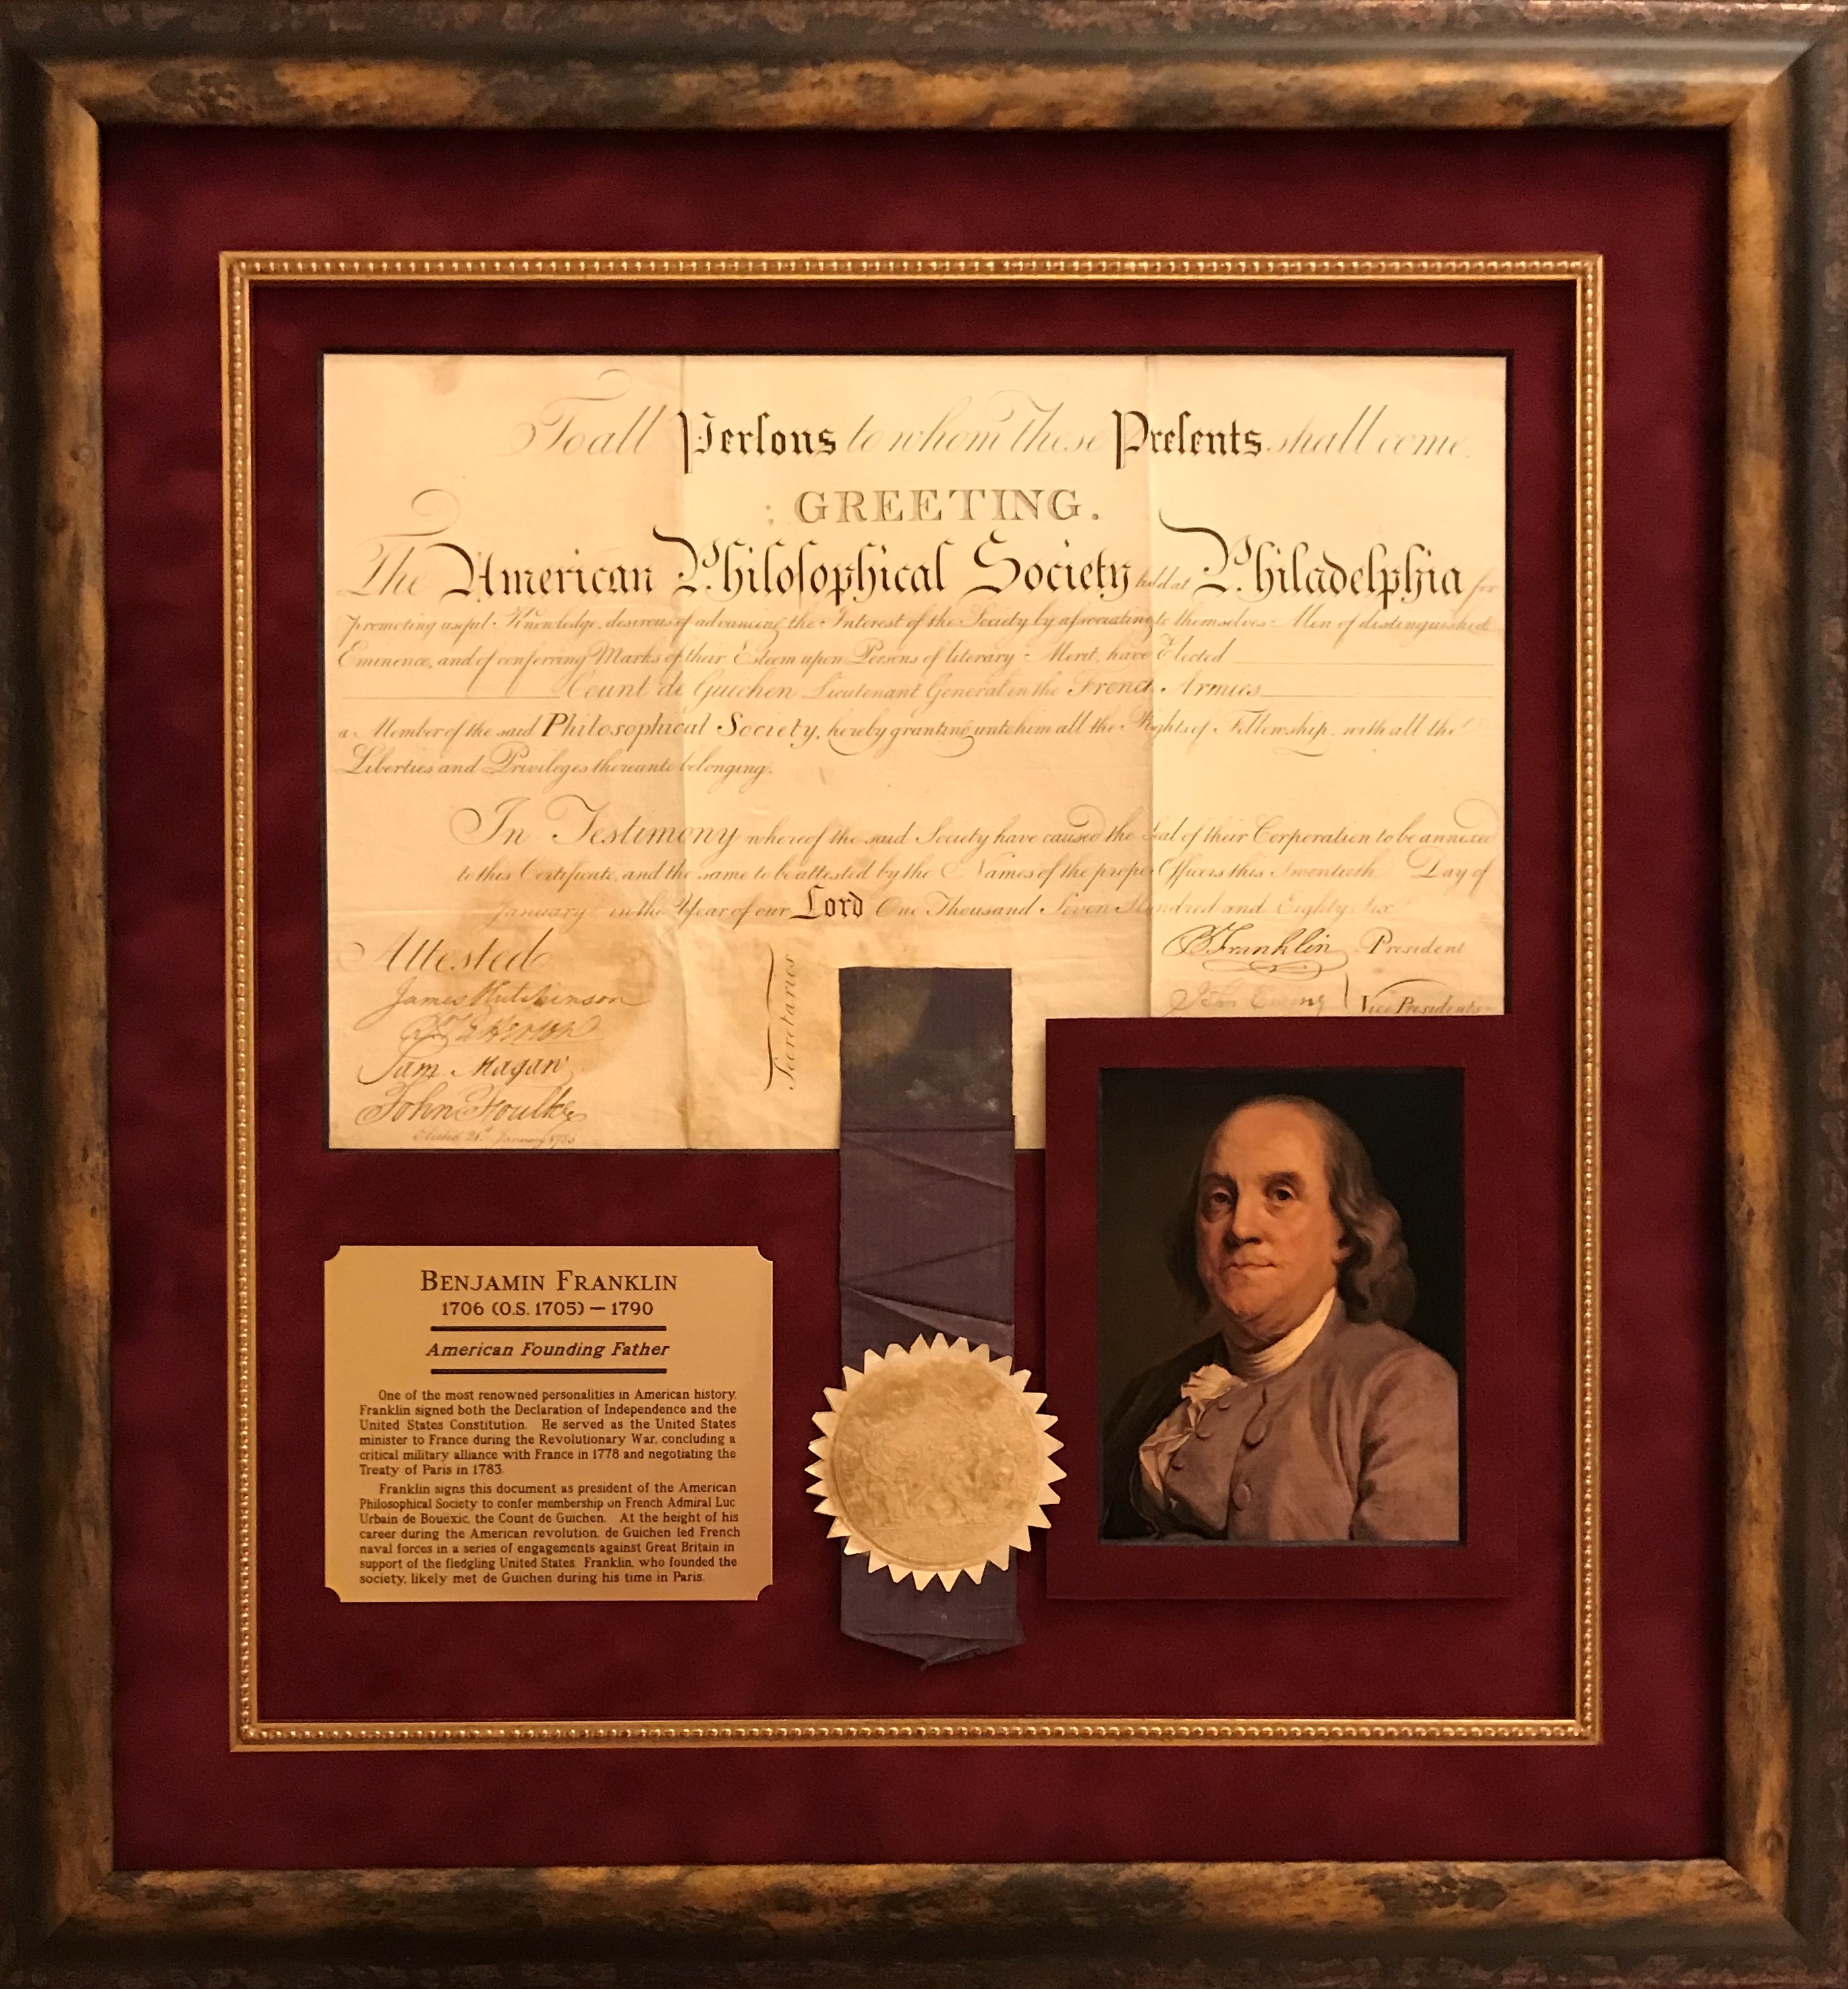 To all Perſons to whom these Preſents shall come
GREETING.
The American Philoſophical Society held at Philadelphia for
promoting useful Knowledge, desirous of advancing the Interest of the Society by aſsociating to themselves Men of distinguished
Eminence, and of conferring Marks of their Esteem upon Persons of literary Merit, have Elected
Count de Guichen Lieutenant General in the French Armies
a Member of the said Philosophical Society, hereby granting unto him all the Rights of Fellowship, with all the
Liberties and Privileges thereunto belonging.
In Testimony whereof the said Society have caused the Seal of their Corporation to be annexed
to this Certificate, and the same to be attested by the Names of the proper Officers this Twentieth Day of
January in the Year of our Lord One Thousand Seven Hundred and Eighty Six
Attested
James Hutchinson
Sam Magaw
John Foulke
Secretaries
B Franklin President
John Ewing Vice Presidents
BENJAMIN FRANKLIN
1706 (O.S. 1705) — 1790
American Founding Father
One of the most renowned personalities in American history,
Franklin signed both the Declaration of Independence and the
United States Constitution. He served as the United States
minister to France during the Revolutionary War, concluding a
critical military alliance with France in 1778 and negotiating the
Treaty of Paris in 1783.
Franklin signs this document as president of the American
Philosophical Society to confer membership on French Admiral Luc
Urbain de Bouexic, the Count de Guichen. At the height of his
career during the American revolution, de Guichen led French
naval forces in a series of engagements against Great Britain in
support of the fledgling United States. Franklin, who founded the
society, likely met de Guichen during his time in Paris.